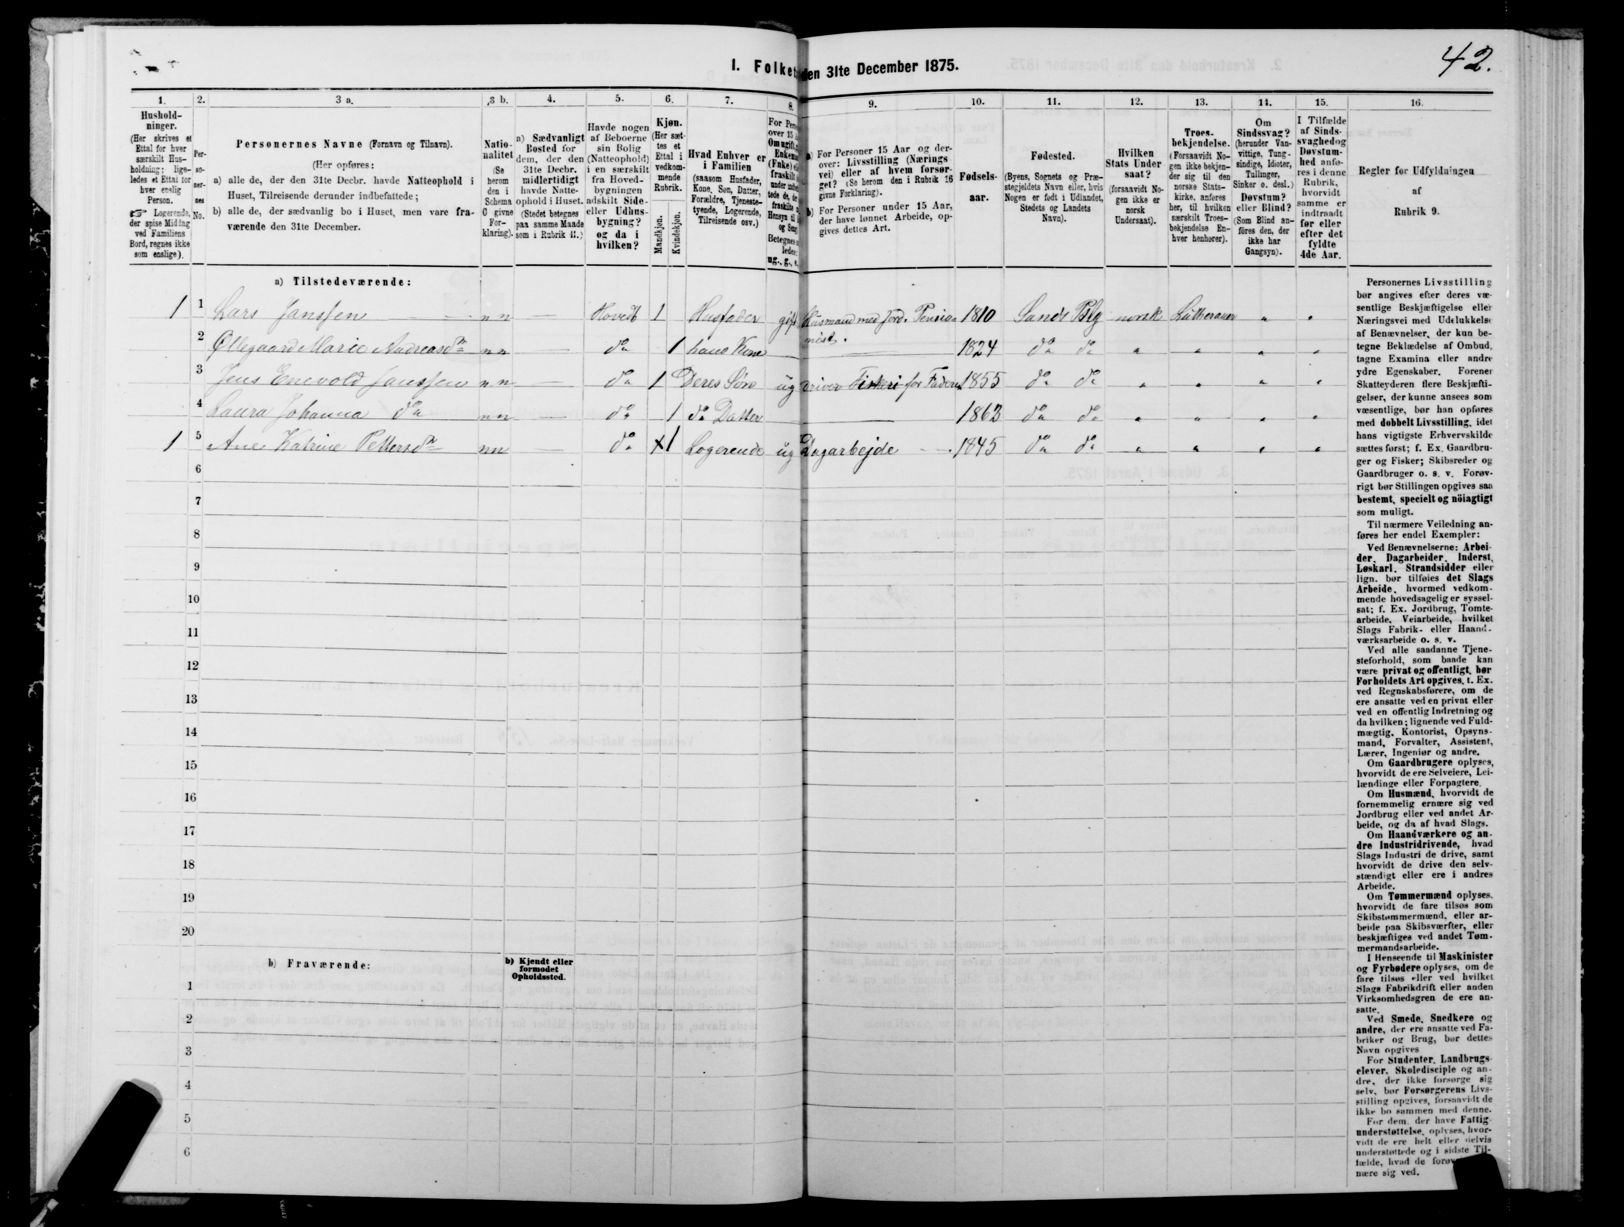 42.
I. Folket
den 31te December 1875.
1. 2. 3 a. 3 b. 4. 5. 6. 7. 8. 9. 10. 11. 12. 13. 14. 15. 16.
Hushold-
ninger.
(Her skrives et
Ettal for hver
særskilt Hus-
holdning; lige-
ledes et Ettal for
hver enslig
Person.
☞ Logerende,
der spise Middag
ved Familiens
Bord, regnes ikke
som enslige).
Per-
so-
ner-
nes
No.
Personernes Navne (Fornavn og Tilnavn).
(Her opføres:
a) alle de, der den 31te Decbr. havde Natteophold i
Huset, Tilreisende derunder indbefattede;
b) alle de, der sædvanlig bo i Huset, men vare fra-
værende den 31te December.
Natio-
nalitet
(Se
herom
den i
Schema
C givne
For-
klaring).
a) Sædvanligt
Bosted for
dem, der den
31te Decbr.
midlertidigt
havde Natte-
ophold i Huset.
(Stedet betegnes
paa samme Maade
som i Rubrik 11.)
Havde nogen
af Beboerne
sin Bolig
(Natteophold)
i en særskilt
fra Hoved-
bygningen
adskilt Side-
eller Udhus-
bygning?
og da i
hvilken?
Kjøn.
(Her sæt-
tes et
Ettal i
vedkom-
mende
Rubrik.
Mandkjøn.
Kvindekjøn.
Hvad Enhver er
i Familien
(saasom Husfader,
Kone, Søn, Datter,
Forældre, Tjeneste-
tyende, Logerende,
Tilreisende osv.)
a) For Personer 15 Aar og der-
over: Livsstilling (Nærings
vei) eller af hvem forsør-
get? (Se herom den i Rubrik 16
givne Forklaring).
b) For Personer under 15 Aar,
der have lønnet Arbeide, op-
gives dettes Art.
Fødsels-
aar.
Fødested.
(Byens, Sognets og Præ-
stegjeldets Navn eller, hvis
Nogen er født i Udlandet,
Stedets og Landets
Navn).
Hvilken
Stats Under
saat?
(forsaavidt No-
gen ikke er
norsk
Undersaat).
Troes-
bekjendelse.
(Forsaavidt No-
gen ikke bekjen-
der sig til den
norske Stats-
kirke, anføres
her, til hvilken
særskilt Troes-
bekjendelse En-
hver henhører).
Om
Sindssvag?
(herunder Van-
vittige, Tung-
sindige, Idioter,
Tullinger,
Sinker o. desl.)
Døvstum?
eller Blind?
(Som Blind an-
føres den, der
ikke har
Gangsyn).
I Tilfælde
af Sinds-
svaghed og
Døvstum-
hed anfø-
res i denne
Rubrik,
hvorvidt
samme er
indtraadt
før eller
efter det
fyldte
4de Aar.
Regler for Udfyldningen
af
Rubrik 9.
a) Tilstedeværende:
1 1 Lars Janssen nn Hovedb 1 Husfader gift Husmand med Jord. Pensio- 1810 Sande Pstg norsk Lutheraner
nist.
2 Ollegaard Marie Andreasdr nn — do 1 hans Kone 1824 do do
3 Jens Enevold Janssen nn — do 1 Deres Søn ug driver Fiskeri for Faderen 1855 do do
4 Laura Johanna do nn — do 1 do Datter 1863 do do
1 5 Ane Katrine Pettersdr nn — do 1 Logerende ug Dagarbejde 1845 do do
6
7
8
9
10
11
12
13
14
15
16
17
18
19
20
b) Fraværende:
b) Kjendt eller
formodet
Opholdssted.
1
2
3
4
5
6
Personernes Livsstilling
bør angives efter deres væ-
sentlige Beskjæftigelse eller
Næringsvei med Udelukkelse
af Benævnelser, der kun be-
tegne Beklædelse af Ombud,
tagne Examina eller andre
ydre Egenskaber. Forener
Skatteyderen flere Beskjæfti-
gelser, der kunne ansees som
væsentlige, bør han opføres
med dobbelt Livsstilling, idet
hans vigtigste Erhvervskilde
sættes først; f. Ex. Gaardbru-
ger og Fisker; Skibsreder og
Gaardbruger o. s. v. Forøv-
rigt bør Stillingen opgives saa
bestemt, specielt og nöiagtigt
som muligt.
Til nærmere Veiledning an-
føres her endel Exempler:
Ved Benævnelserne: Arbei-
der, Dagarbeider, Inderst,
Løskarl, Strandsidder eller
lign. bør tilføies det Slags
Arbeide, hvormed vedkom-
mende hovedsagelig er syssel-
sat; f. Ex. Jordbrug, Tomte-
arbeide, Veiarbeide, hvilket
Slags Fabrik- eller Haand-
værksarbeide o. s. v.
Ved alle saadanne Tjene-
steforhold, som baade kan
være privat og offentligt, bør
Forholdets Art opgives, t. Ex.
ved Regnskabsførere, om de
ere ansatte ved en privat eller
ved en offentlig Indretning og
da hvilken; lignende ved Fuld-
mægtig, Kontorist, Opsyns-
mand, Forvalter, Assistent,
Lærer, Ingeniør og andre.
Om Gaardbrugere oplyses,
hvorvidt de ere Selveiere, Lei-
lændinge eller Forpagtere.
Om Husmænd, hvorvidt de
fornemmelig ernære sig ved
Jordbrug eller ved andet Ar-
beide, og da af hvad Slags.
Om Haandværkere og an-
dre Industridrivende, hvad
Slags Industri de drive, samt
hvorvidt de drive den selv-
stændigt eller ere i andres
Arbeide.
Om Tømmermænd oplyses,
hvorvidt de fare tilsøs som
Skibstømmermænd, eller ar-
beide paa Skibsværfter, eller
beskjæftiges ved andet Tøm-
mermandsarbeide.
I Henseende til Maskinister
og Fyrbødere oplyses, om de
fare tilsøs eller ved hvilket
Slags Fabrikdrift eller anden
Virksomhedsgren de ere an-
satte.
Ved Smede, Snedkere og
andre, der ere ansatte ved Fa-
briker og Brug, bør dettes
Navn opgives
For Studenter, Landbrugs-
elever, Skoledisciple og an-
dre, der ikke forsørge sig
selv, bør Forsørgerens Livs-
stilling opgives, forsaavidt de
ikke bo sammen med denne.
For dem, der have Fattig-
understøttelse, oplyses, hvor-
vidt de ere helt eller delvis
understøttede og i sidste Til-
fælde, hvad de forøv
nære sig ved.